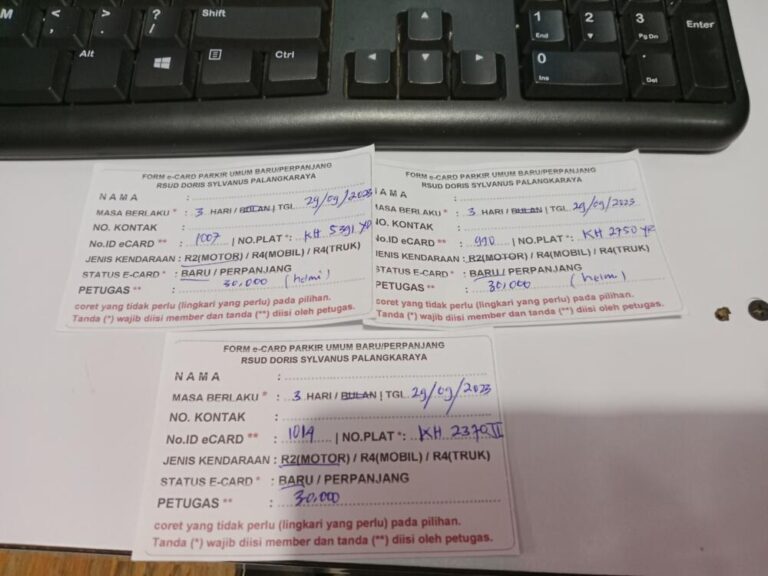 M
<
,
>
.
?
/
Shift
Alt
Ctrl
1
End
2
3
Pg Dn
Enter
0
Ins
.
Del
FORM e-CARD PARKIR UMUM BARU/PERPANJANG
RSUD DORIS SYLVANUS PALANGKARAYA
NAMA :
MASA BERLAKU * : 3 HARI / BULAN | TGL. 29/09/2023
NO. KONTAK :
No.ID eCARD ** : 1007 | NO.PLAT *: KH 5391 YP
JENIS KENDARAAN : R2(MOTOR) / R4(MOBIL) / R4(TRUK)
STATUS E-CARD * : BARU / PERPANJANG
PETUGAS ** : 30,000 (helmi)
coret yang tidak perlu (lingkari yang perlu) pada pilihan.
Tanda (*) wajib diisi member dan tanda (**) diisi oleh petugas.
FORM e-CARD PARKIR UMUM BARU/PERPANJANG
RSUD DORIS SYLVANUS PALANGKARAYA
NAMA :
MASA BERLAKU * : 3 HARI / BULAN | TGL. 29/09/2023
NO. KONTAK :
No.ID eCARD ** : 910 | NO.PLAT *: KH 2750
JENIS KENDARAAN : R2(MOTOR) / R4(MOBIL) / R4(TRUK)
STATUS E-CARD * : BARU / PERPANJANG
PETUGAS ** : 30,000 (helmi)
coret yang tidak perlu (lingkari yang perlu) pada pilihan.
Tanda (*) wajib diisi member dan tanda (**) diisi oleh petugas.
FORM e-CARD PARKIR UMUM BARU/PERPANJANG
RSUD DORIS SYLVANUS PALANGKARAYA
NAMA :
MASA BERLAKU * : 3 HARI / BULAN | TGL. 29/09/2023
NO. KONTAK :
No.ID eCARD ** : 1014 | NO.PLAT *: KH 2370
JENIS KENDARAAN : R2(MOTOR) / R4(MOBIL) / R4(TRUK)
STATUS E-CARD * : BARU / PERPANJANG
PETUGAS ** : 30,000
coret yang tidak perlu (lingkari yang perlu) pada pilihan.
Tanda (*) wajib diisi member dan tanda (**) diisi oleh petugas.